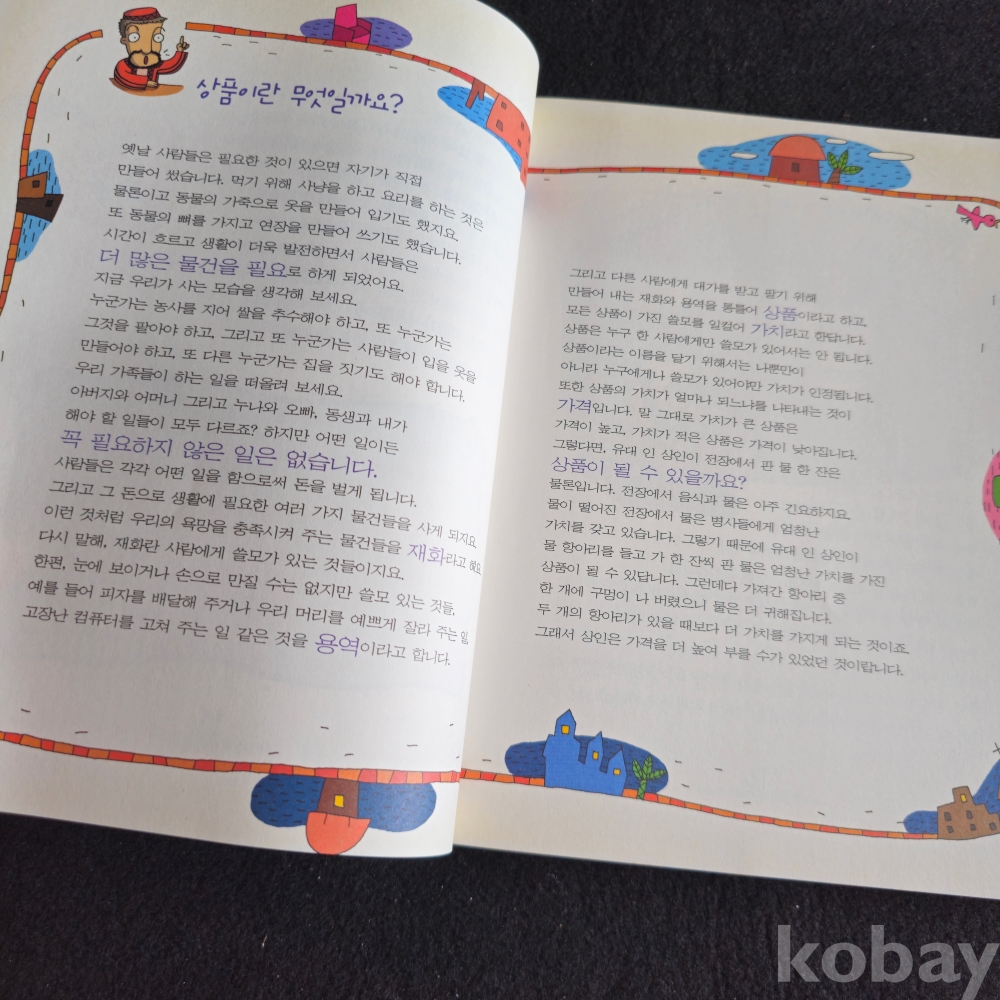 상품이란 무엇일까요?
옛날 사람들은 필요한 것이 있으면 자기가 직접
만들어 썼습니다. 먹기 위해 사냥을 하고 요리를 하는 것은
물론이고 동물의 가죽으로 옷을 만들어 입기도 했지요.
또 동물의 뼈를 가지고 연장을 만들어 쓰기도 했습니다.
시간이 흐르고 생활이 더욱 발전하면서 사람들은
더 많은 물건을 필요로 하게 되었어요.
지금 우리가 사는 모습을 생각해 보세요.
누군가는 농사를 지어 쌀을 추수해야 하고, 또 누군가는
그것을 팔아야 하고, 그리고 또 누군가는 사람들이 입을 옷을
만들어야 하고, 또 다른 누군가는 집을 짓기도 해야 합니다.
우리 가족들이 하는 일을 떠올려 보세요.
아버지와 어머니 그리고 누나와 오빠, 동생과 내가
해야 할 일들이 모두 다르죠? 하지만 어떤 일이든
꼭 필요하지 않은 일은 없습니다.
사람들은 각각 어떤 일을 함으로써 돈을 벌게 됩니다.
그리고 그 돈으로 생활에 필요한 여러 가지 물건들을 사게 되지요.
이런 것처럼 우리의 욕망을 충족시켜 주는 물건들을 재화라고 해요.
다시 말해, 재화란 사람에게 쓸모가 있는 것들이지요.
한편, 눈에 보이거나 손으로 만질 수는 없지만 쓸모 있는 것들,
예를 들어 피자를 배달해 주거나 우리 머리를 예쁘게 잘라 주는 일,
고장난 컴퓨터를 고쳐 주는 일 같은 것을 용역이라고 합니다.
그리고 다른 사람에게 대가를 받고 팔기 위해
만들어 내는 재화와 용역을 통틀어 상품이라고 하고,
모든 상품이 가진 쓸모를 일컬어 가치라고 한답니다.
상품은 누구 한 사람에게만 쓸모가 있어서는 안 됩니다.
상품이라는 이름을 달기 위해서는 나뿐만이
아니라 누구에게나 쓸모가 있어야만 가치가 인정됩니다.
또한 상품의 가치가 얼마나 되느냐를 나타내는 것이
가격입니다. 말 그대로 가치가 큰 상품은
가격이 높고, 가치가 적은 상품은 가격이 낮아집니다.
그렇다면, 유대 인 상인이 전장에서 판 물 한 잔은
상품이 될 수 있을까요?
물론입니다. 전장에서 음식과 물은 아주 긴요하지요.
물이 떨어진 전장에서 물은 병사들에게 엄청난
가치를 갖고 있습니다. 그렇기 때문에 유대 인 상인이
물 항아리를 들고 가 한 잔씩 판 물은 엄청난 가치를 가진
상품이 될 수 있답니다. 그런데다 가져간 항아리 중
한 개에 구멍이 나 버렸으니 물은 더 귀해집니다.
두 개의 항아리가 있을 때보다 더 가치를 가지게 되는 것이죠.
그래서 상인은 가격을 더 높여 부를 수가 있었던 것이랍니다.
kobay